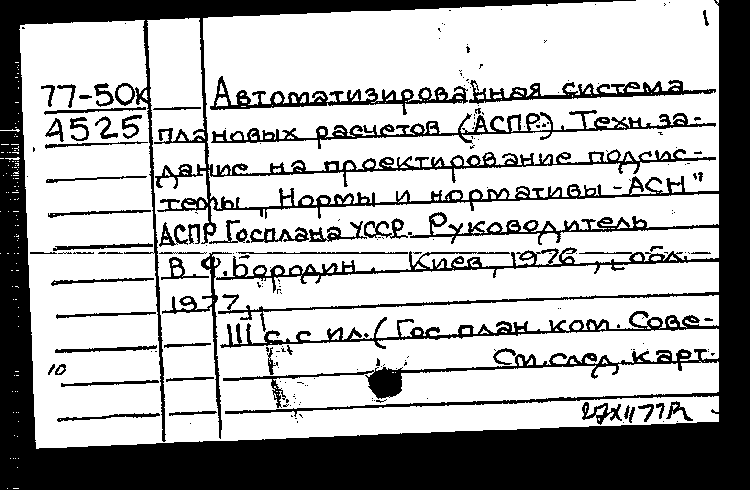 1
77-50к Автоматизированная система
4525 плановых расчетов (АСПР). Техн. за-
дание на проектирование подсис-
темы „Нормы и нормативы-АСН"
АСПР Госплана УССР. Руководитель
В.Ф.Бородин. Киев, 1976, [обл.
1977].
III с. с ил. (Гос. план. ком. Сове-
10 См. след. карт.